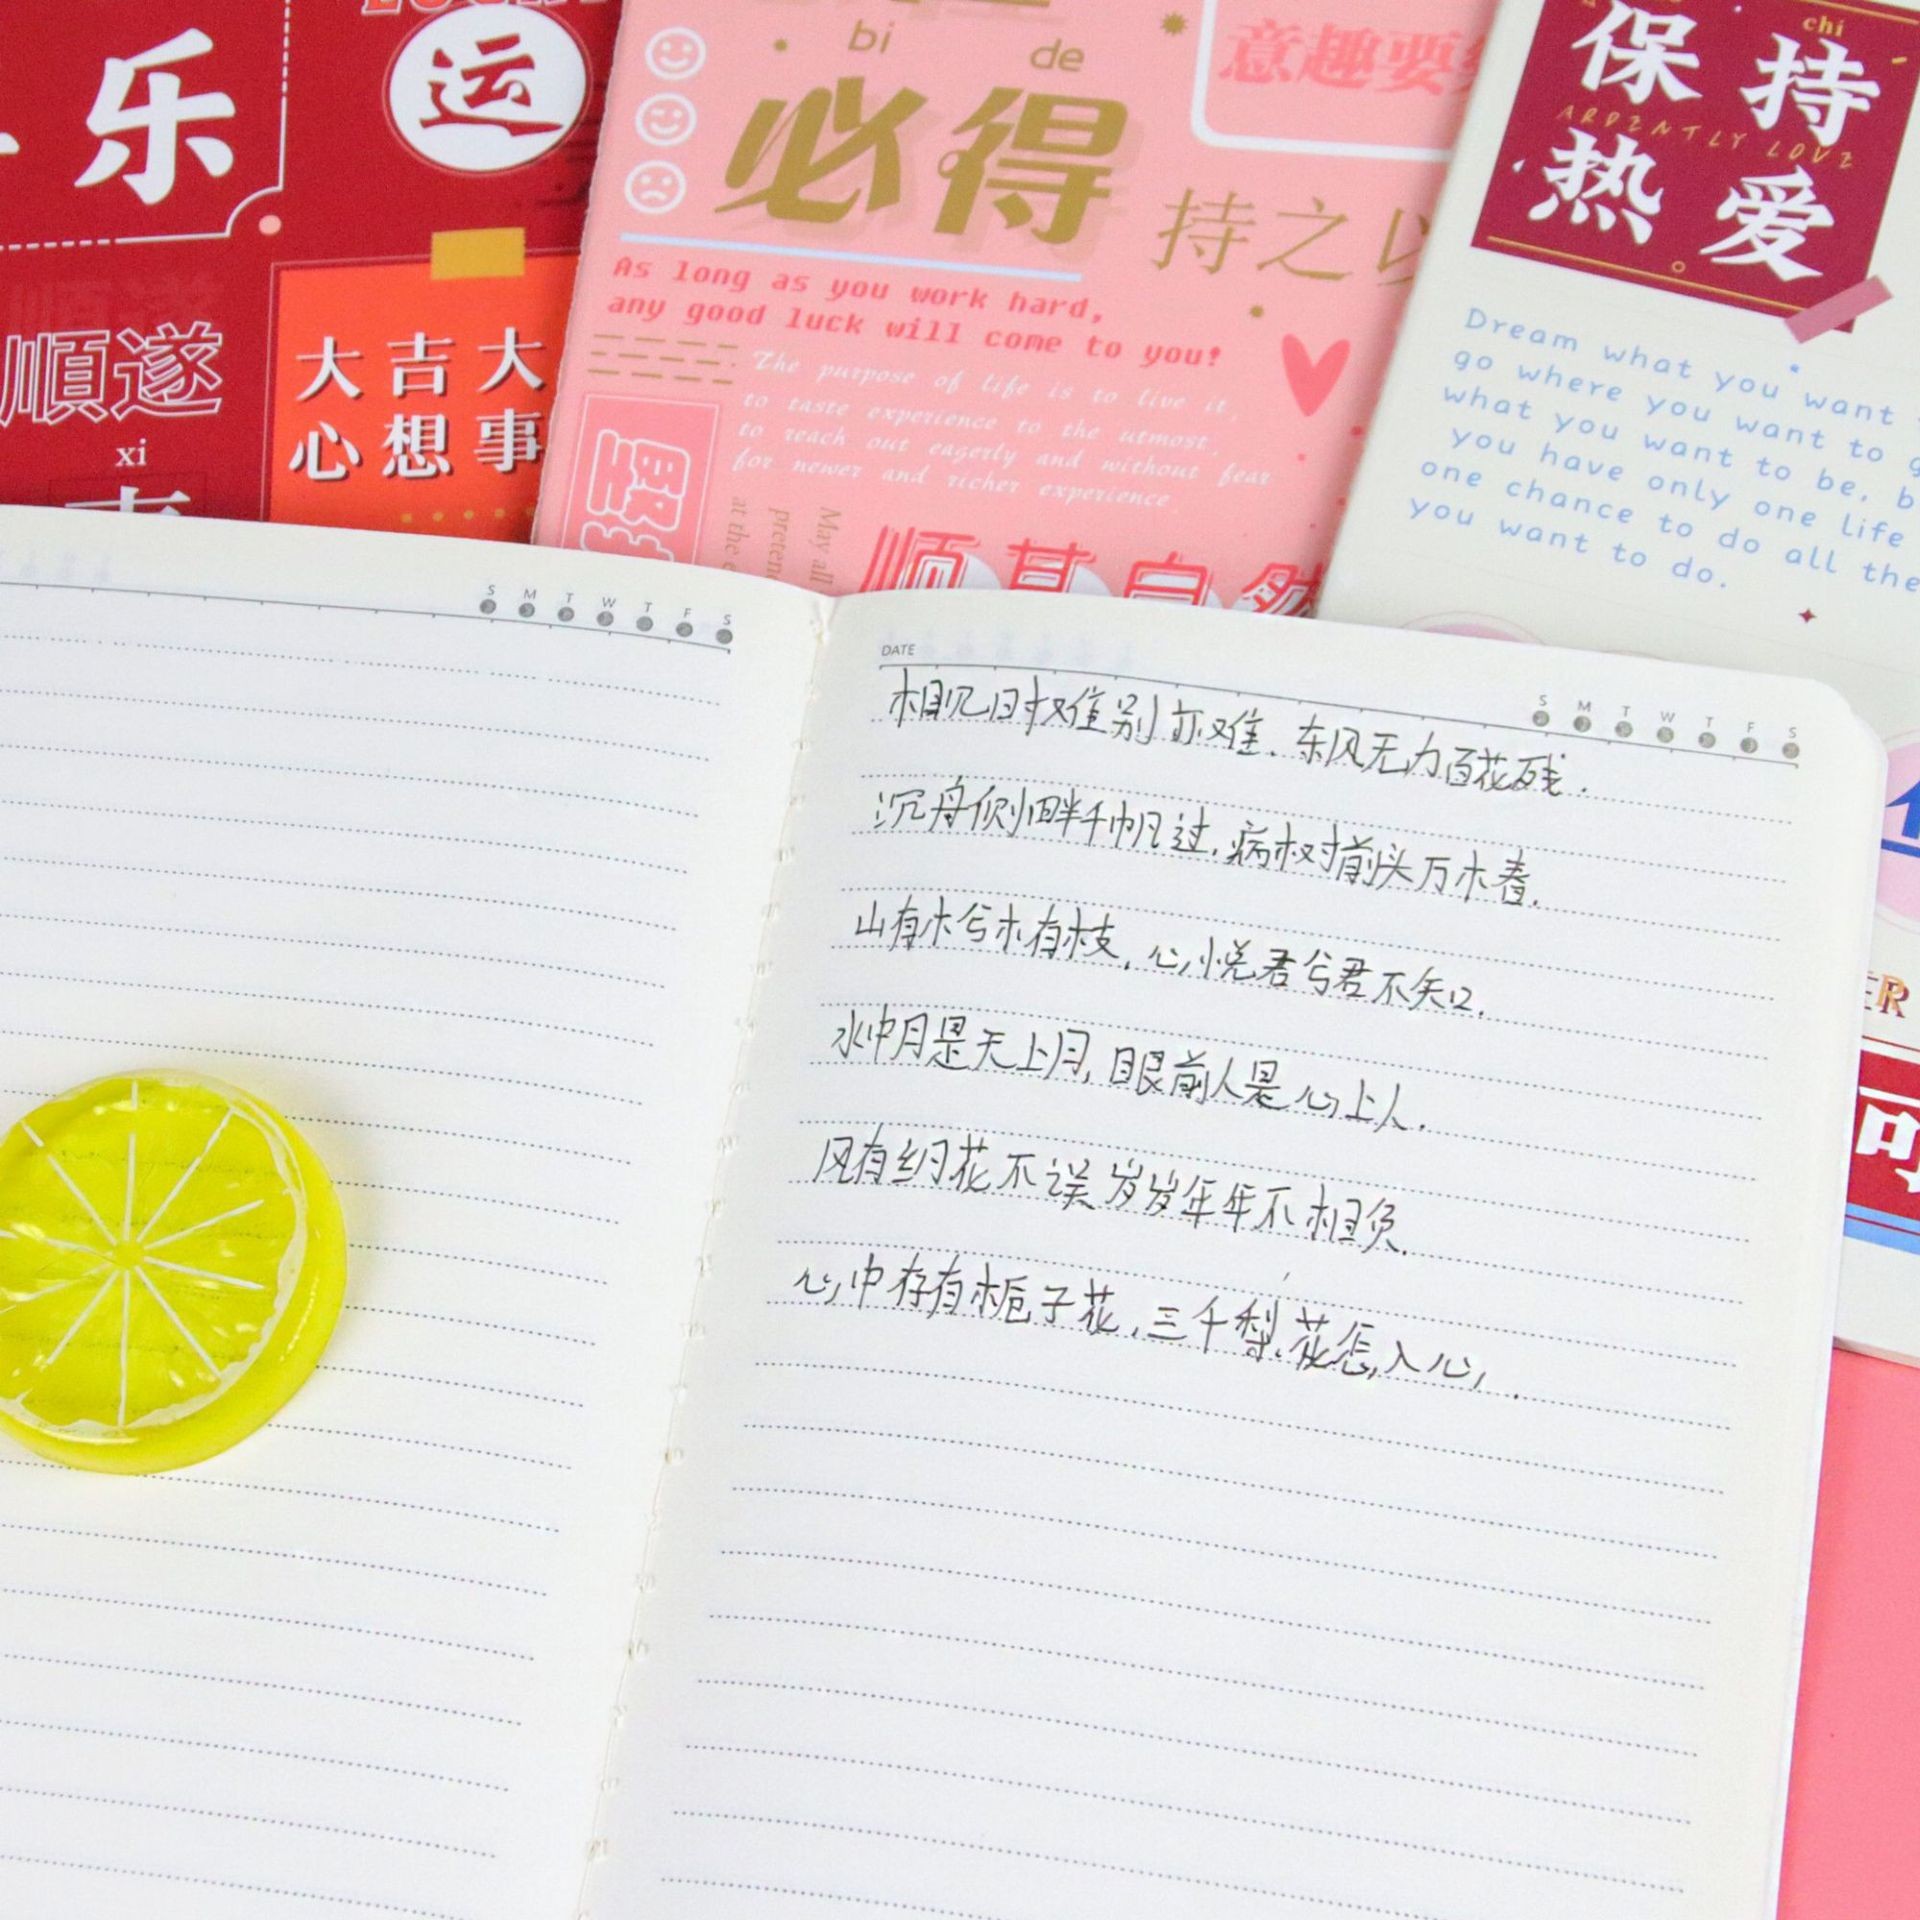 乐
运
順遂
xi
大吉大
心想事
bi de
必得
意趣要
持之以
As long as you work hard,
any good luck will come to you!
The purpose of life is to live it,
to taste experience to the utmost,
to reach out eagerly and without fear
for newer and richer experience.
May all
at the e
顺其自然
chi
保持
ARDENTLY LOVE
热爱
Dream what you want
go where you want to g
what you want to be, b
you have only one life
one chance to do all the
you want to do.
S M T W T F S
DATE
S M T W T F S
相见时难别亦难.东风无力百花残.
沉舟侧畔千帆过,病树前头万木春.
山有木兮木有枝,心悦君兮君不知.
水中月是天上月,眼前人是心上人.
风有约花不误岁岁年年不相负.
心中存有栀子花,三千梨花怎入心.
ER
可